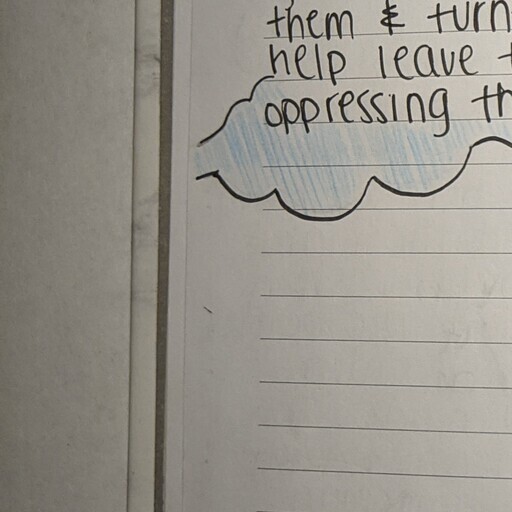 them & turn
help leave
oppressing